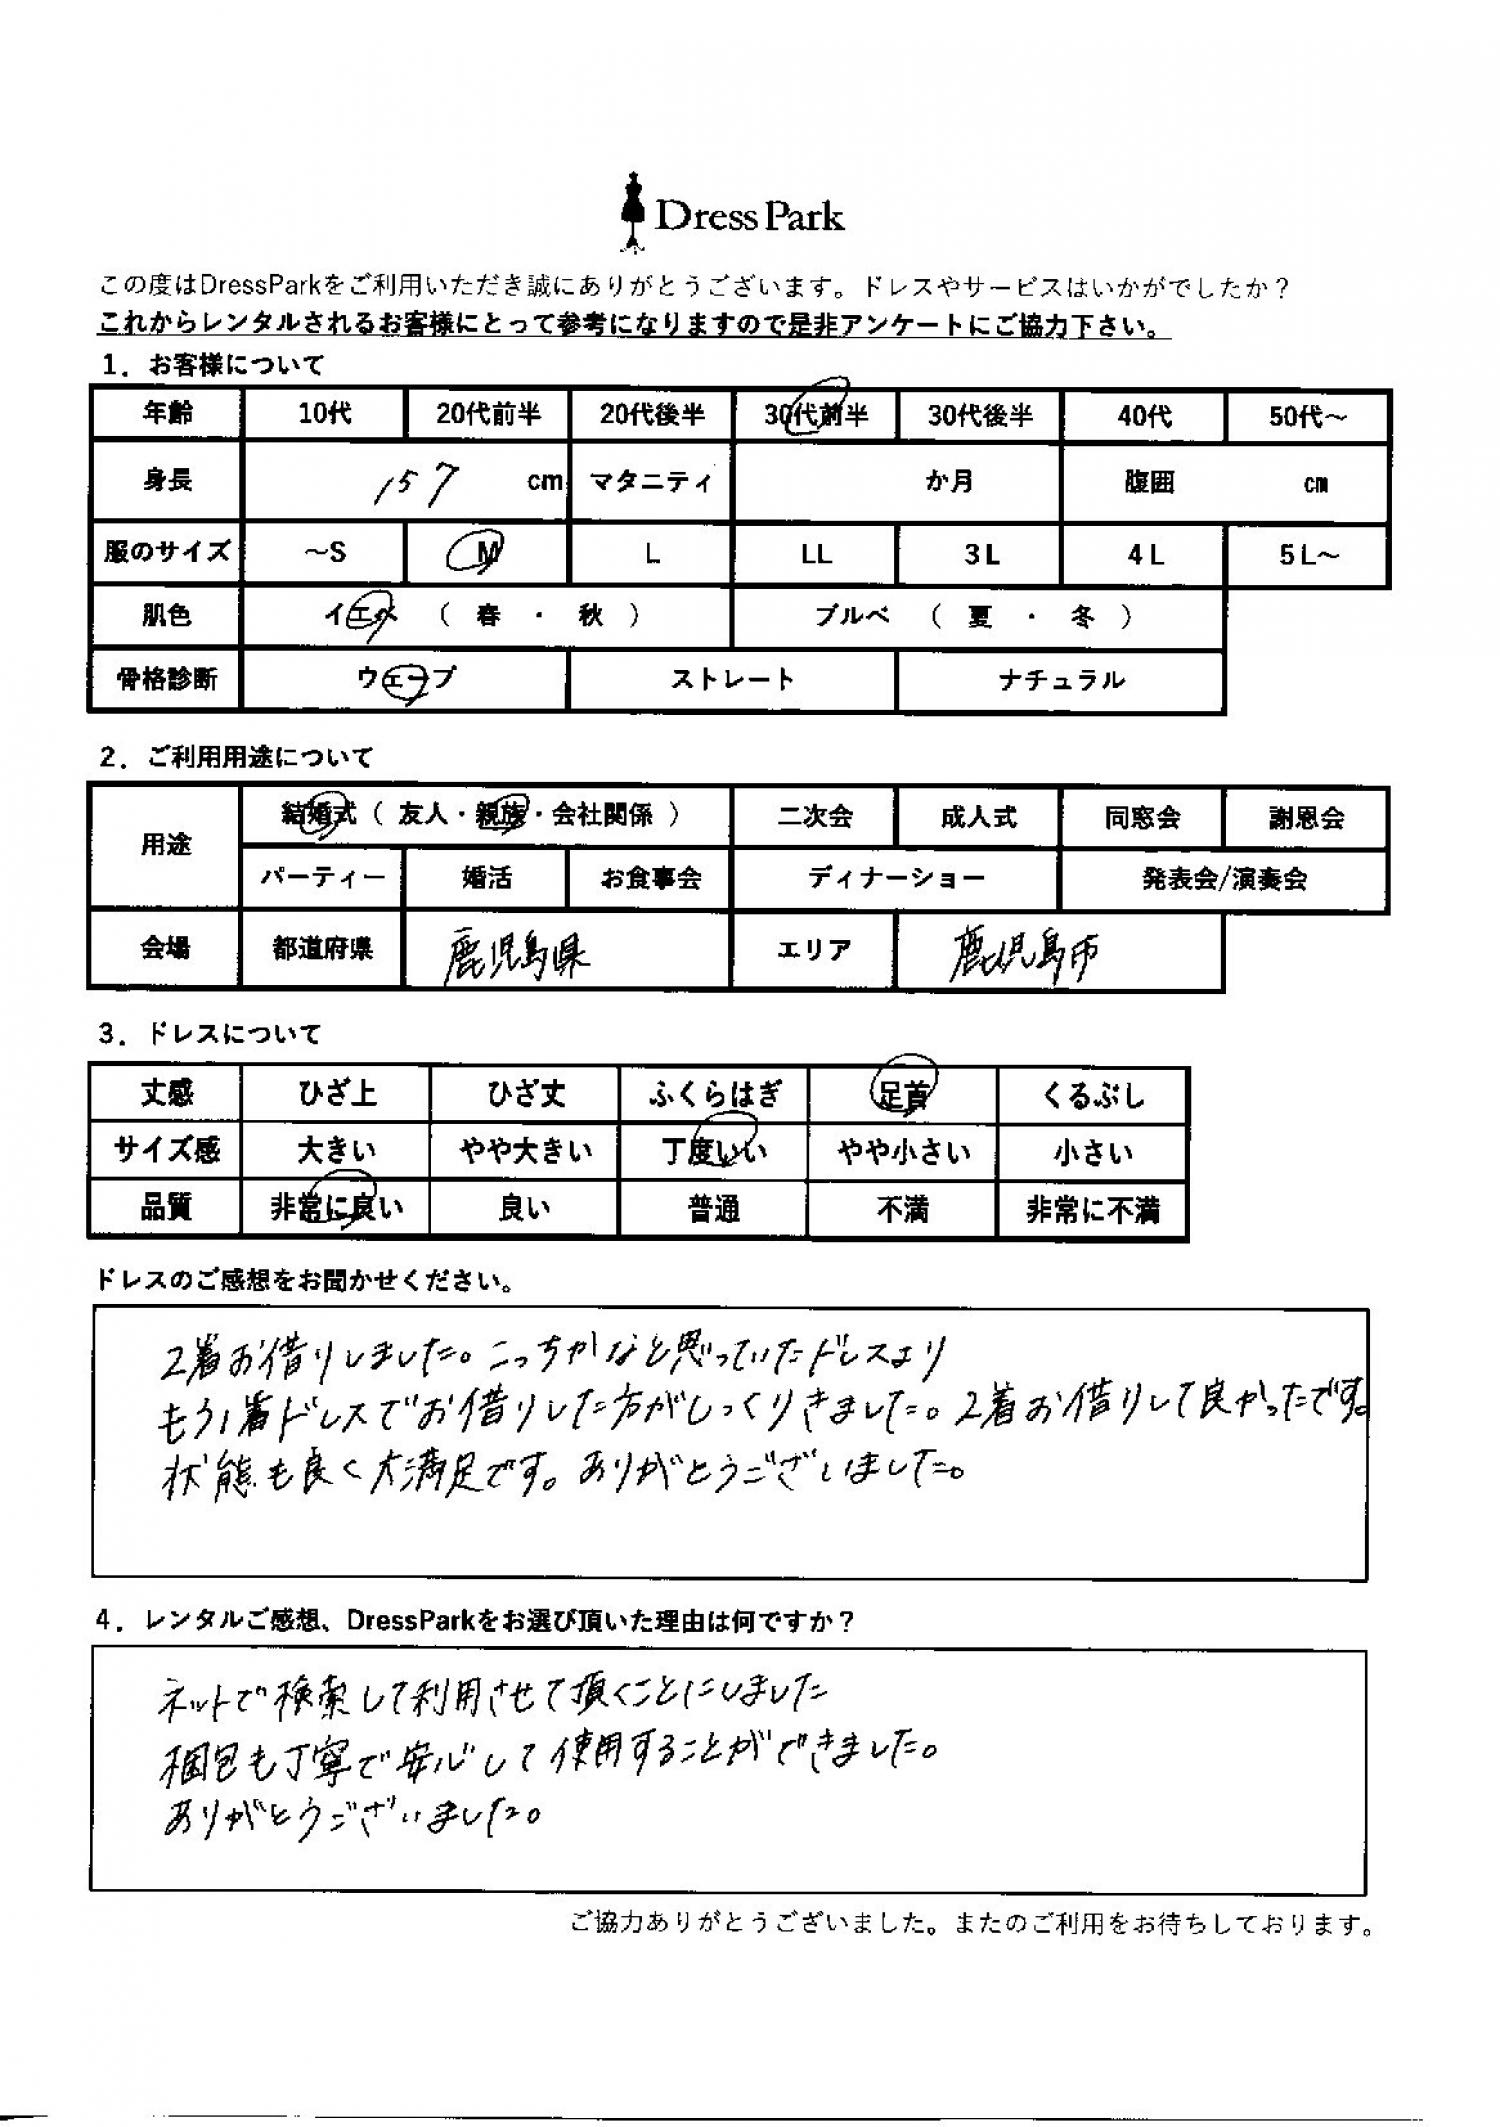 Dress Park
この度はDressParkをご利用いただき誠にありがとうございます。ドレスやサービスはいかがでしたか？
これからレンタルされるお客様にとって参考になりますので是非アンケートにご協力下さい。
1．お客様について
年齢 10代 20代前半 20代後半 30代前半 30代後半 40代 50代～
身長 157 cm マタニティ か月 腹囲 cm
服のサイズ ～S M L LL 3L 4L 5L～
肌色 イエベ （ 春 ・ 秋 ） ブルベ （ 夏 ・ 冬 ）
骨格診断 ウェーブ ストレート ナチュラル
2．ご利用用途について
用途 結婚式（ 友人・親族・会社関係 ） 二次会 成人式 同窓会 謝恩会
パーティー 婚活 お食事会 ディナーショー 発表会/演奏会
会場 都道府県 鹿児島県 エリア 鹿児島市
3．ドレスについて
丈感 ひざ上 ひざ丈 ふくらはぎ 足首 くるぶし
サイズ感 大きい やや大きい 丁度いい やや小さい 小さい
品質 非常に良い 良い 普通 不満 非常に不満
ドレスのご感想をお聞かせください。
2着お借りしました。こっちかなと思っていたドレスより
もう1着ドレスでお借りした方がしっくりきました。2着お借りして良かったです。
状態も良く大満足です。ありがとうございました。
4．レンタルご感想、DressParkをお選び頂いた理由は何ですか？
ネットで検索して利用させて頂くことにしました
梱包も丁寧で安心して使用することができました。
ありがとうございました。
ご協力ありがとうございました。またのご利用をお待ちしております。